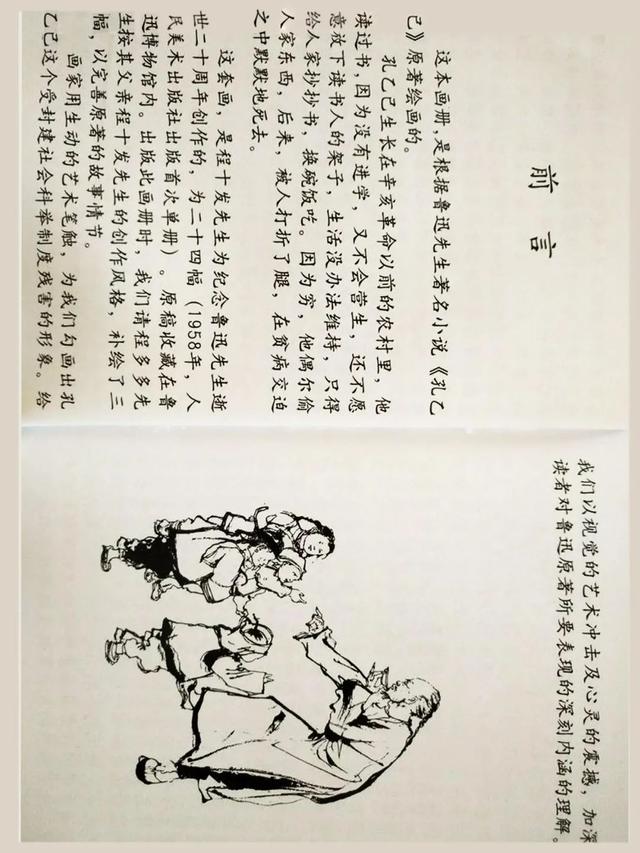 前言
这本画册，是根据鲁迅先生著名小说《孔乙
己》原著绘画的。
孔乙己生长在辛亥革命以前的农村里，他
读过书，因为没有进学，又不会营生，还不愿
意放下读书人的架子，生活没办法维持，只得
给人家抄抄书，换碗饭吃。因为穷，他偶尔偷
人家东西，后来，被人打折了腿，在贫病交迫
之中默默地死去。
这套画，是程十发先生为纪念鲁迅先生逝
世二十周年创作的，为二十四幅（1958年，人
民美术出版社出版首次单册）。原稿收藏在鲁
迅博物馆内。出版此画册时，我们请程多多先
生按其父亲程十发先生的创作风格，补绘了三
幅，以完善原著的故事情节。
画家用生动的艺术笔触，为我们勾画出孔
乙己这个受封建社会科举制度残害的形象。给
我们以视觉的艺术冲击及心灵的震撼，加深
读者对鲁迅原著所要表现的深刻内涵的理解。